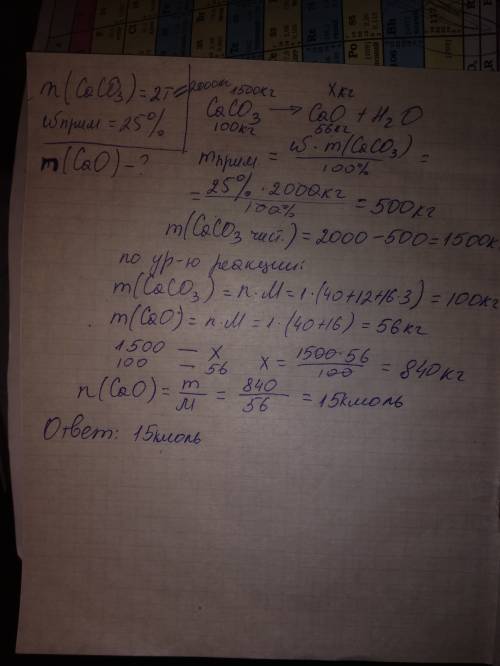 n(CaCO₃) = 2т = 2000кг
ωприм = 25%
m(CaO) - ?
1500кг Xкг
CaCO₃ → CaO + H₂O
100кг 56кг
mприм = ω · m(CaCO₃) / 100% =
= 25% · 2000кг / 100% = 500кг
m(CaCO₃ чист.) = 2000 - 500 = 1500к
по ур-ю реакции:
m(CaCO₃) = n · M = 1 · (40+12+16·3) = 100кг
m(CaO) = n · M = 1 · (40+16) = 56кг
1500 — X
100 — 56 X = 1500·56 / 100 = 840кг
n(CaO) = m / M = 840 / 56 = 15кмоль
Ответ: 15кмоль